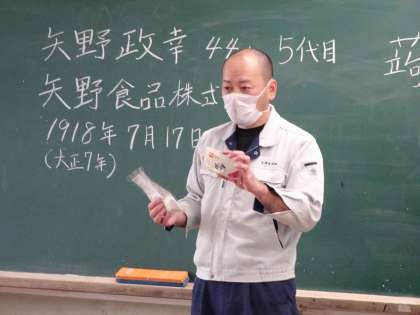 矢野政幸 44 5代目
矢野食品株式
1918年7月17日
(大正7年)
蒟